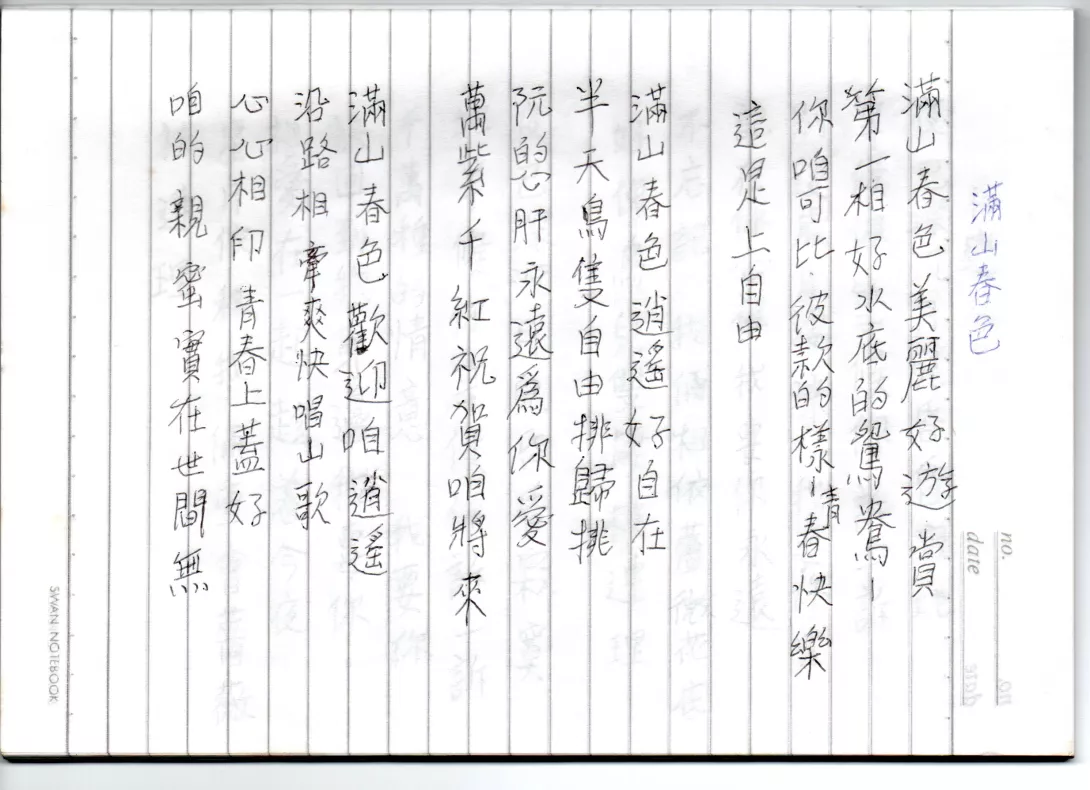 滿山春色
滿山春色美麗好遊賞
第一相好水底的鴛鴦
你咱可比彼款的樣 青春快樂
這是上自由
滿山春色逍遙好自在
半天鳥隻自由排歸排
阮的心肝永遠為你愛
萬紫千紅祝賀咱將來
滿山春色歡迎咱逍遙
沿路相牽爽快唱山歌
心心相印青春上蓋好
咱的親蜜實在世間無
no.
date
SWAN NOTEBOOK